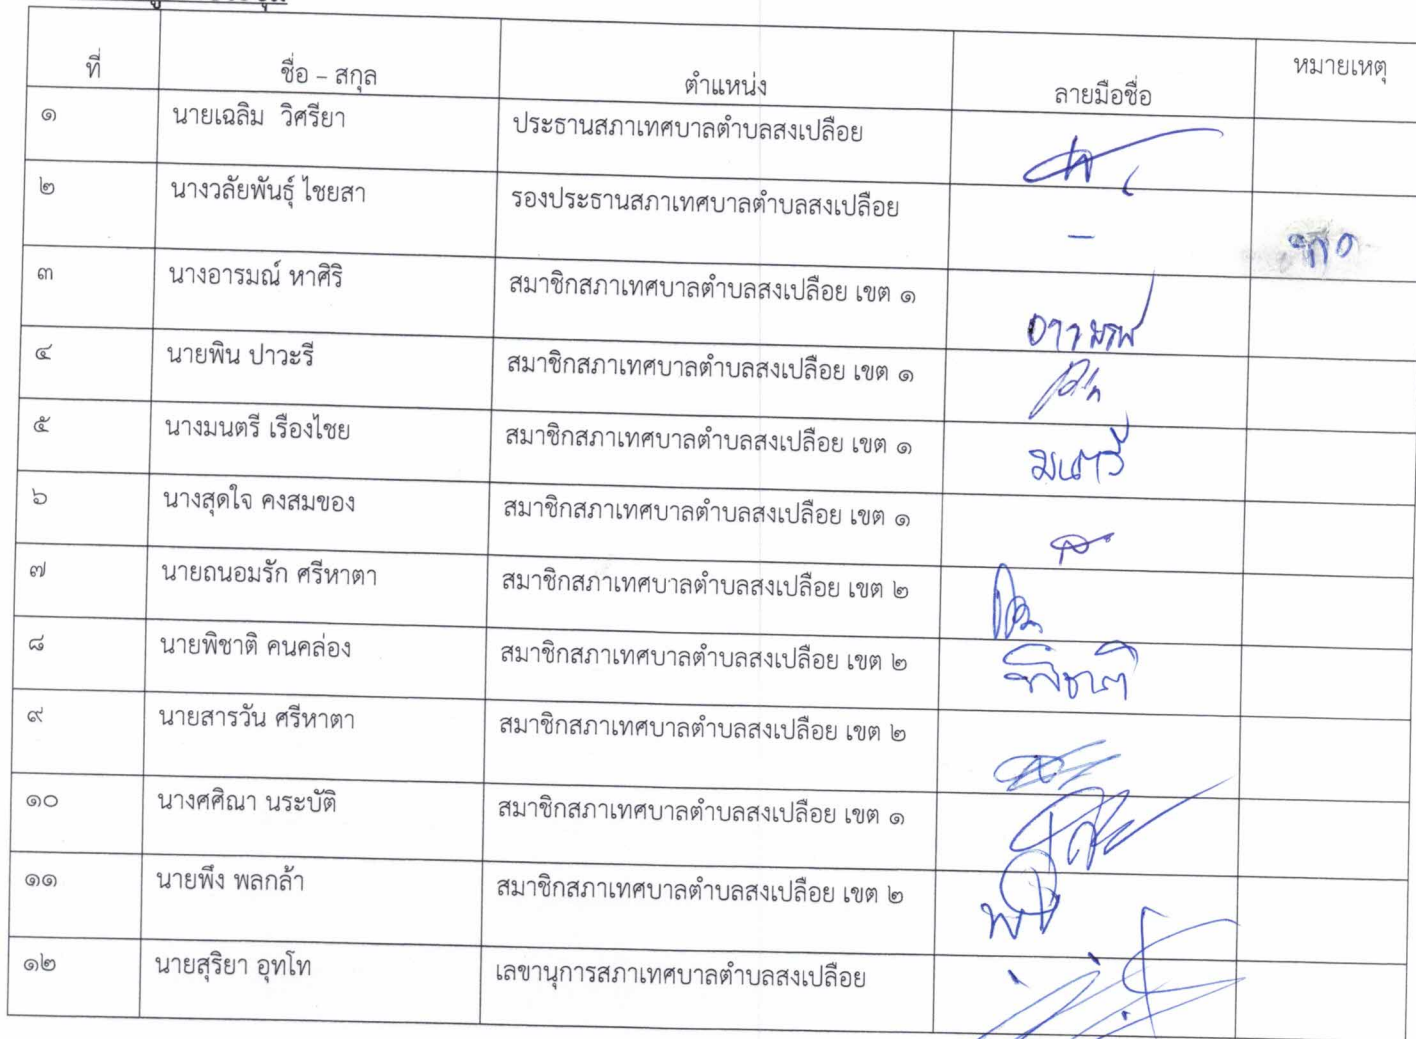 ที่ ชื่อ – สกุล ตำแหน่ง ลายมือชื่อ หมายเหตุ
๑ นายเฉลิม วิศรียา ประธานสภาเทศบาลตำบลสงเปลือย
๒ นางวลัยพันธุ์ ไชยสา รองประธานสภาเทศบาลตำบลสงเปลือย –
๓ นางอารมณ์ หาศิริ สมาชิกสภาเทศบาลตำบลสงเปลือย เขต ๑
๔ นายพิน ปาวะรี สมาชิกสภาเทศบาลตำบลสงเปลือย เขต ๑
๕ นางมนตรี เรืองไชย สมาชิกสภาเทศบาลตำบลสงเปลือย เขต ๑ มนตรี
๖ นางสุดใจ คงสมของ สมาชิกสภาเทศบาลตำบลสงเปลือย เขต ๑
๗ นายถนอมรัก ศรีหาตา สมาชิกสภาเทศบาลตำบลสงเปลือย เขต ๒
๘ นายพิชาติ คนคล่อง สมาชิกสภาเทศบาลตำบลสงเปลือย เขต ๒ พิชาติ
๙ นายสารวัน ศรีหาตา สมาชิกสภาเทศบาลตำบลสงเปลือย เขต ๒
๑๐ นางศศิณา นระบัติ สมาชิกสภาเทศบาลตำบลสงเปลือย เขต ๑
๑๑ นายพึง พลกล้า สมาชิกสภาเทศบาลตำบลสงเปลือย เขต ๒
๑๒ นายสุริยา อุทโท เลขานุการสภาเทศบาลตำบลสงเปลือย